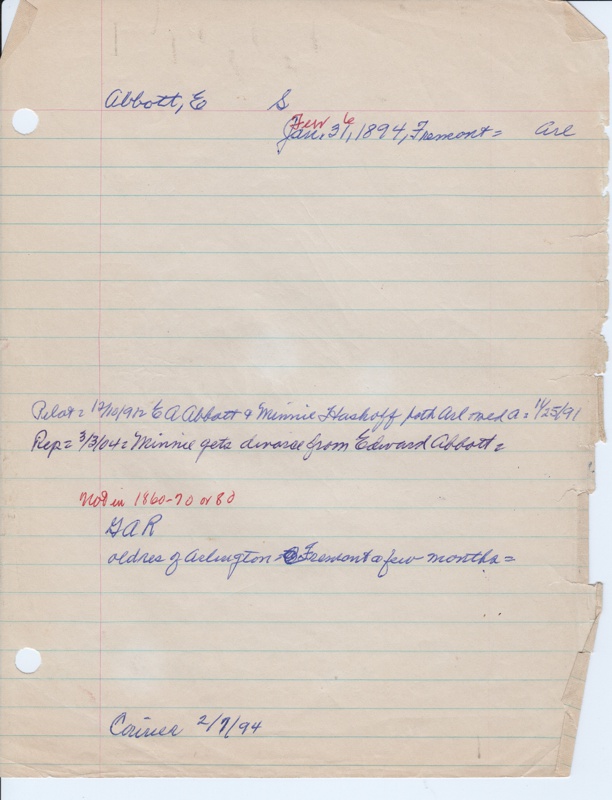 Abbott, E S
Feb 6
Jan. 31, 1894, Fremont = Arl
Pilot = 12/10/91 = E A Abbott & Minnie Hashoff both Arl med a = 11/25/91
Rep = 3/3/04 = Minnie gets divorse from Edward Abbott =
not in 1860-70 or 80
GAR
old res of Arlington = Fremont a few months =
Courier 2/7/94